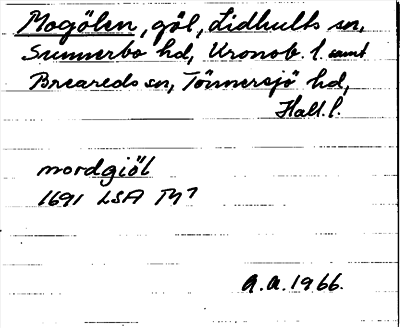 Mogölen, göl, Lidhults sn,
Sunnerbo hd, Kronob. l. samt
Breareds sn, Tönnersjö hd,
Hall. l.
mordgiöl
1691 LSA
A.A. 1966.